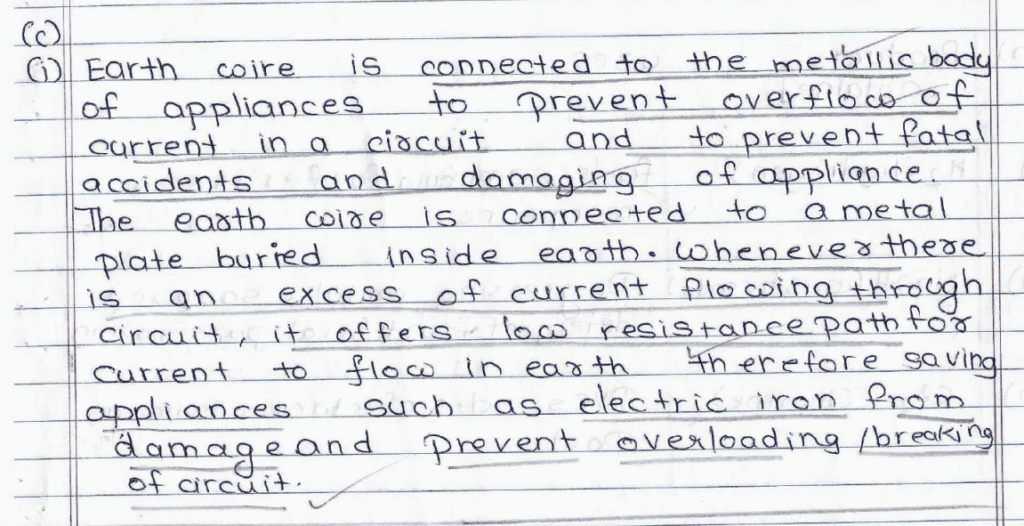 (c)
(i) Earth wire is connected to the metallic body
of appliances to prevent overflow of
current in a circuit and to prevent fatal
accidents and damaging of appliance.
The earth wire is connected to a metal
plate buried inside earth. Whenever there
is an excess of current flowing through
circuit, it offers low resistance path for
current to flow in earth therefore saving
appliances such as electric iron from
damage and prevent overloading /breaking
of circuit.